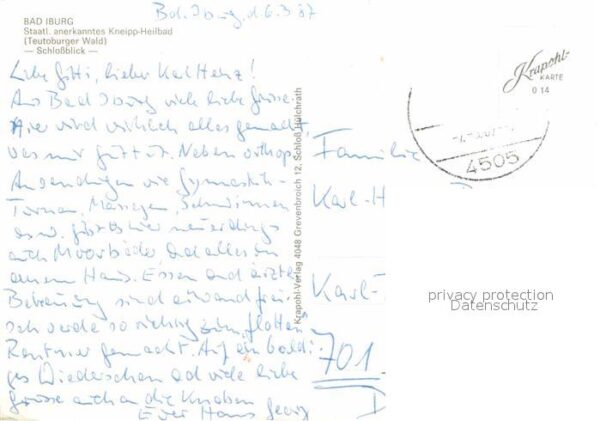 Bad Iburg, d. 6.3.87
BAD IBURG
Staatl. anerkanntes Kneipp-Heilbad
(Teutoburger Wald)
— Schloßblick —
Liebe Gitti, lieber Karl Heinz!
Aus Bad Iburg viele liebe Grüsse.
Hier wird wirklich alles gemacht,
was mir gut tut. Neben orthop.
Anwendungen wie Gymnastik-
Turnen, Massagen, Schwimmen
usw. gibt es hier neuerdings
auch Moorbäder, und alles in
einem Haus. Essen und ärztl.
Betreuung sind einwandfrei.
Ich werde so richtig zum „flotten"
Rentner gemacht. Auf ein baldi-
ges Wiedersehen und viele liebe
Grüsse auch an die Knaben
Euer Hans Georg
Krapohl-Verlag 4048 Grevenbroich 12, Schloß Hülchrath
Krapohl-
KARTE
0 14
4505
Familie
Karl-H
Karl-
701
D
privacy protection
Datenschutz